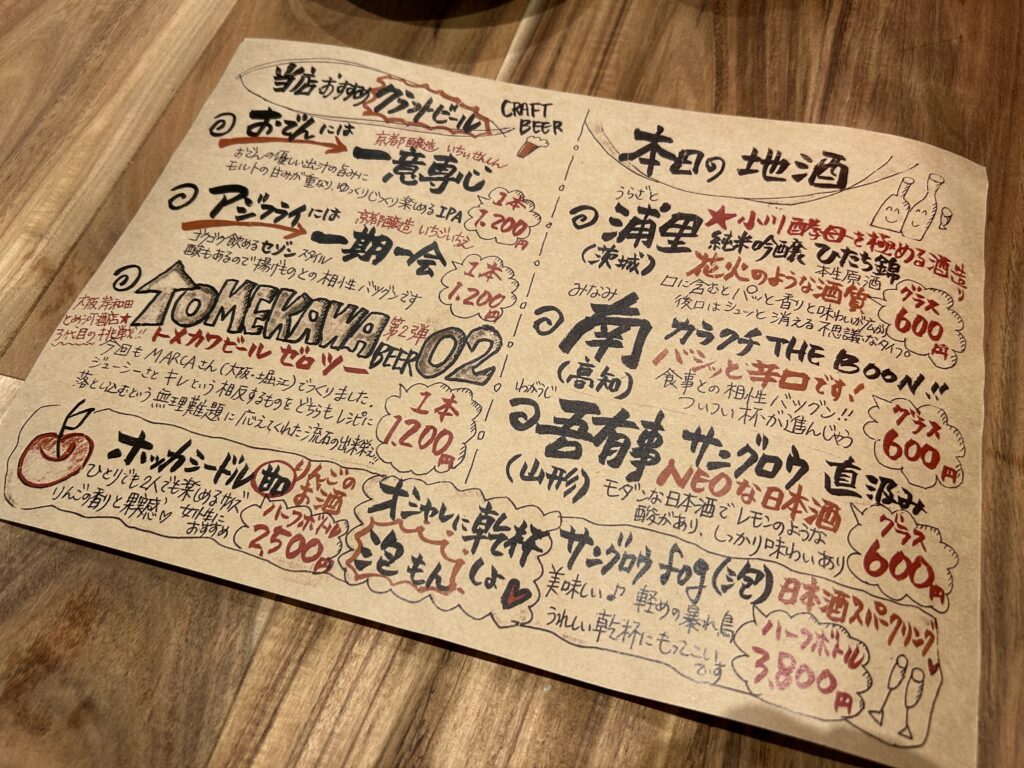 当店おすすめ クラフトビール
CRAFT
BEER
おでんには
京都醸造 いちいせんしん
一意専心
おでんの優しい出汁の旨みに
モルトの甘みが重なり、ゆっくりじっくり楽める IPA
1本
1,200円
アジフライには
京都醸造 いちごいちえ
一期一会
ゴクゴク飲めるセゾンスタイル
酸もあるので揚げものとの相性バツグンです
1本
1,200円
TOMEKAWA BEER 02
第2弾
大阪岸和田
とめ河酒店★
3代目の挑戦!!
トメカワビール ゼロツー
今回もMARCAさん(大阪・堀江)でつくりました。
ジューシーさとキレという相反するものをどちらもレシピに
落とし込むという無理難題に応えてくれた流石の出来栄え!!
1本
1,200円
ホッカシードル
りんごの
お酒
ひとりでも2人でも楽めるサイズ
りんごの香りと果実感♡
女性に
おすすめ
ハーフボトル
2500円
オシャレに乾杯
泡もん! しよ♥
本日の地酒
うらざと
浦里
(茨城)
★小川酵母を極める酒造り
純米吟醸 ひたち錦
本生原酒
花火のような酒質
口に含むとパッと香りと味わい広がり
後口はシュッと消える不思議なタイプ。
グラス
600円
みなみ
南
(高知)
カラクチ THE BOON!!
バシッと辛口です!
食事との相性バツグン!!
ついつい杯が進んじゃう
グラス
600円
わがうじ
吾有事
(山形)
サングロウ 直汲み
NEOな日本酒
モダンな日本酒でレモンのような
酸があり、しっかり味わいあり
グラス
600円
サングロウ fog(泡)
日本酒スパークリング♥
美味しい♪ 軽めの暴れ鳥
うれしい乾杯にもってこい
です
ハーフボトル
3,800円